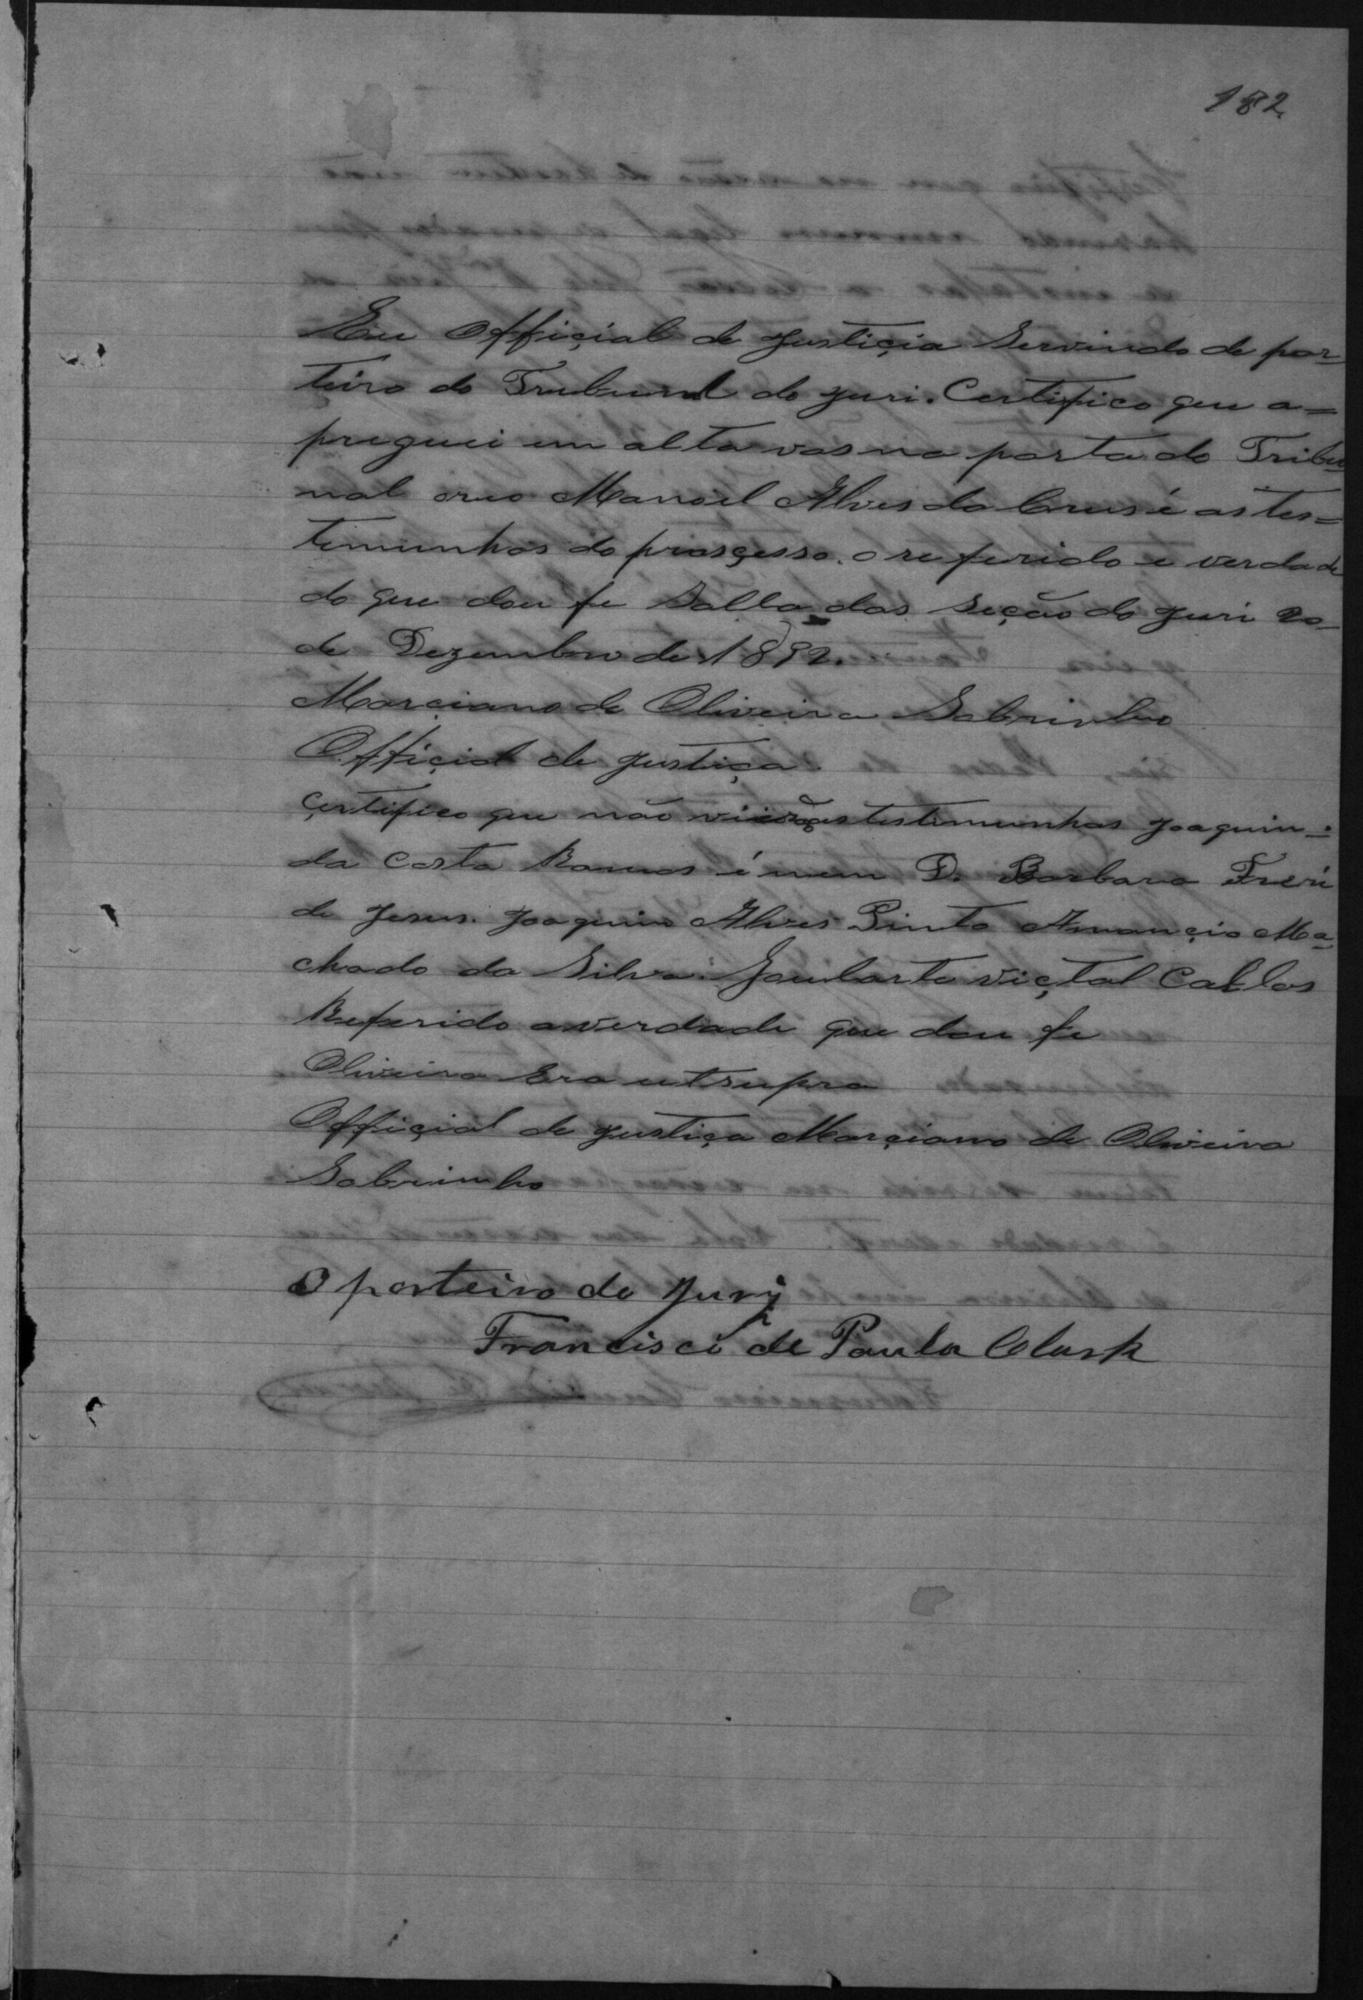 182
Eu Official de Justiçia Servindo de por
teiro do Tribunal do Juri. Certifico que a=
preguei em alta vos na porta do Tribu
nal oreo Manoel Alves da Crus é as tes=
temunhas do prosçesso. o referido e verdade
do que dou fe Salla das seção do Juri 20
de Dezembro de 1892.
Marçiano de Oliveira Sobrinho
Offiçial de Justiça.
Çertifico que não as testemunhas Joaquim
da Costa Ramos é nem D. Barbara
de Jesus. Joaquim Alves Pinto Amançio Ma
chado da Silva. Goularte Viçtal Callos
Referido averdade que dou fe
Oliveira Era utsupra
Offiçial de Justiça Marçiano de Oliveira
Sobrinho
O porteiro do Jury
Francisco de Paula Clark